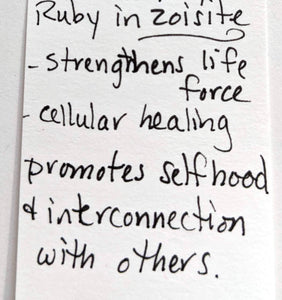 Ruby in zoisite
- strengthens life
force
- cellular healing
promotes selfhood
& interconnection
with others.